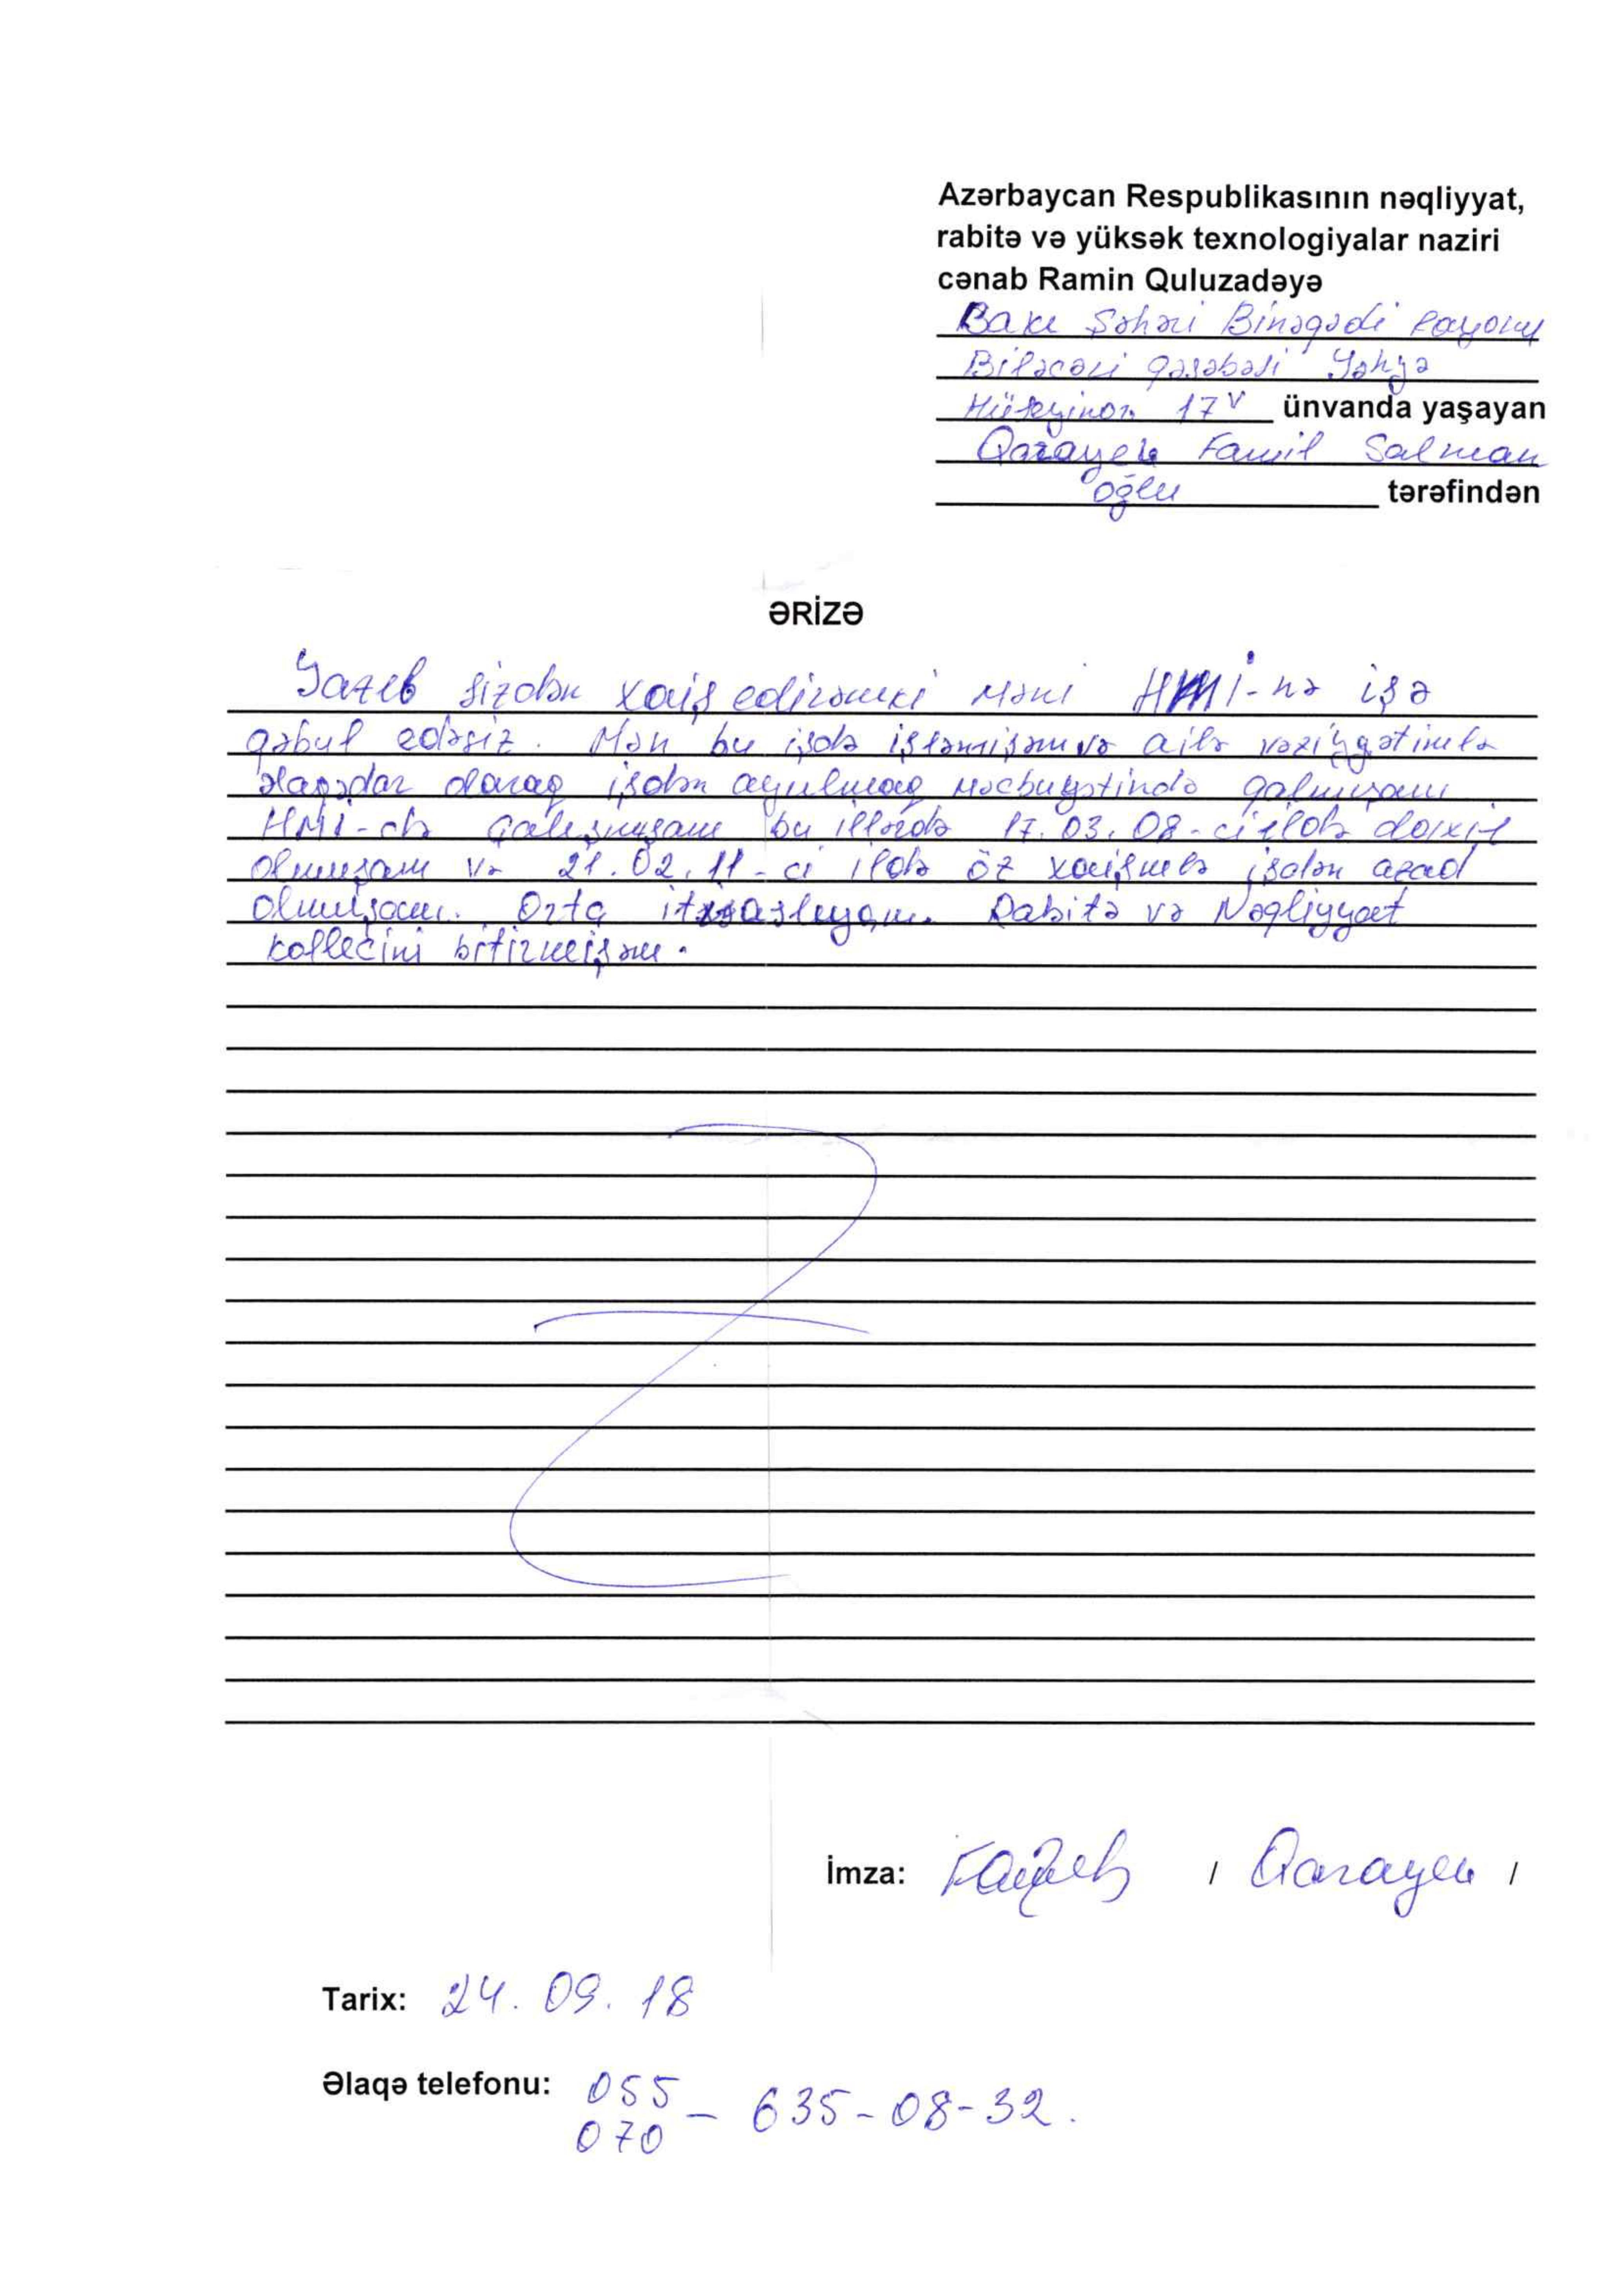 Azərbaycan Respublikasının nəqliyyat,
rabitə və yüksək texnologiyalar naziri
cənab Ramin Quluzadəyə
Bakı Şəhəri Binəqədi rayonu
Biləcəri qəsəbəsi Yəhya
Hüseyinov 17 v ünvanda yaşayan
Qarayev Famil Salman
oğlu tərəfindən
ƏRİZƏ
Yazıb sizdən xaiş edirəmki məni HMİ-nə işə
qəbul edəsiz. Mən bu işdə işləmişəm və ailə vəziyyətimlə
əlaqədar olaraq işdən ayrılmaq məcbuyətində qalmışam
HMİ-də çalışmışam bu illərdə 17.03.08-ci ildə daixil
olmuşam və 21.02.11-ci ildə öz xaişmlə işdən azad
olmuşam. Orta itxsaslıyam. Rabitə və Nəqliyyat
kollecini bitirmişəm.
İmza: / Qarayev /
Tarix: 24.09.18
Əlaqə telefonu: 055
070 – 635-08-32.